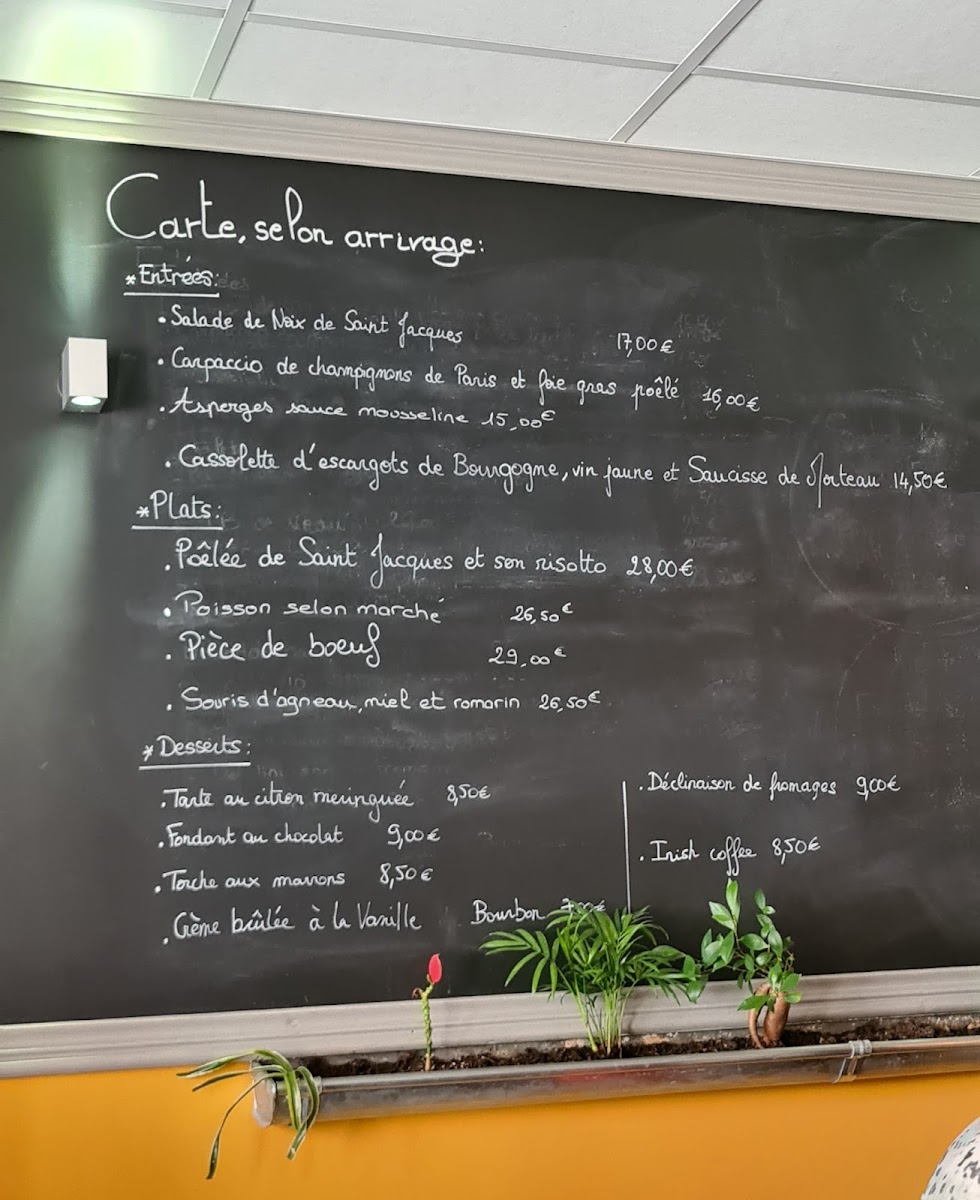 Carte, selon arrivage:
* Entrées:
• Salade de Noix de Saint Jacques 17,00€
• Carpaccio de champignons de Paris et foie gras poêlé 16,00€
• Asperges sauce mousseline 15,00€
• Cassolette d'escargots de Bourgogne, vin jaune et Saucisse de Morteau 14,50€
* Plats:
• Poêlée de Saint Jacques et son risotto 28,00€
• Poisson selon marché 26,50€
• Pièce de boeuf 29,00€
• Souris d'agneau, miel et romarin 26,50€
* Desserts:
• Tarte au citron meringuée 8,50€
• Fondant au chocolat 9,00€
• Torche aux marrons 8,50€
• Crème brûlée à la Vanille Bourbon
• Déclinaison de fromages 9,00€
• Irish coffee 8,50€